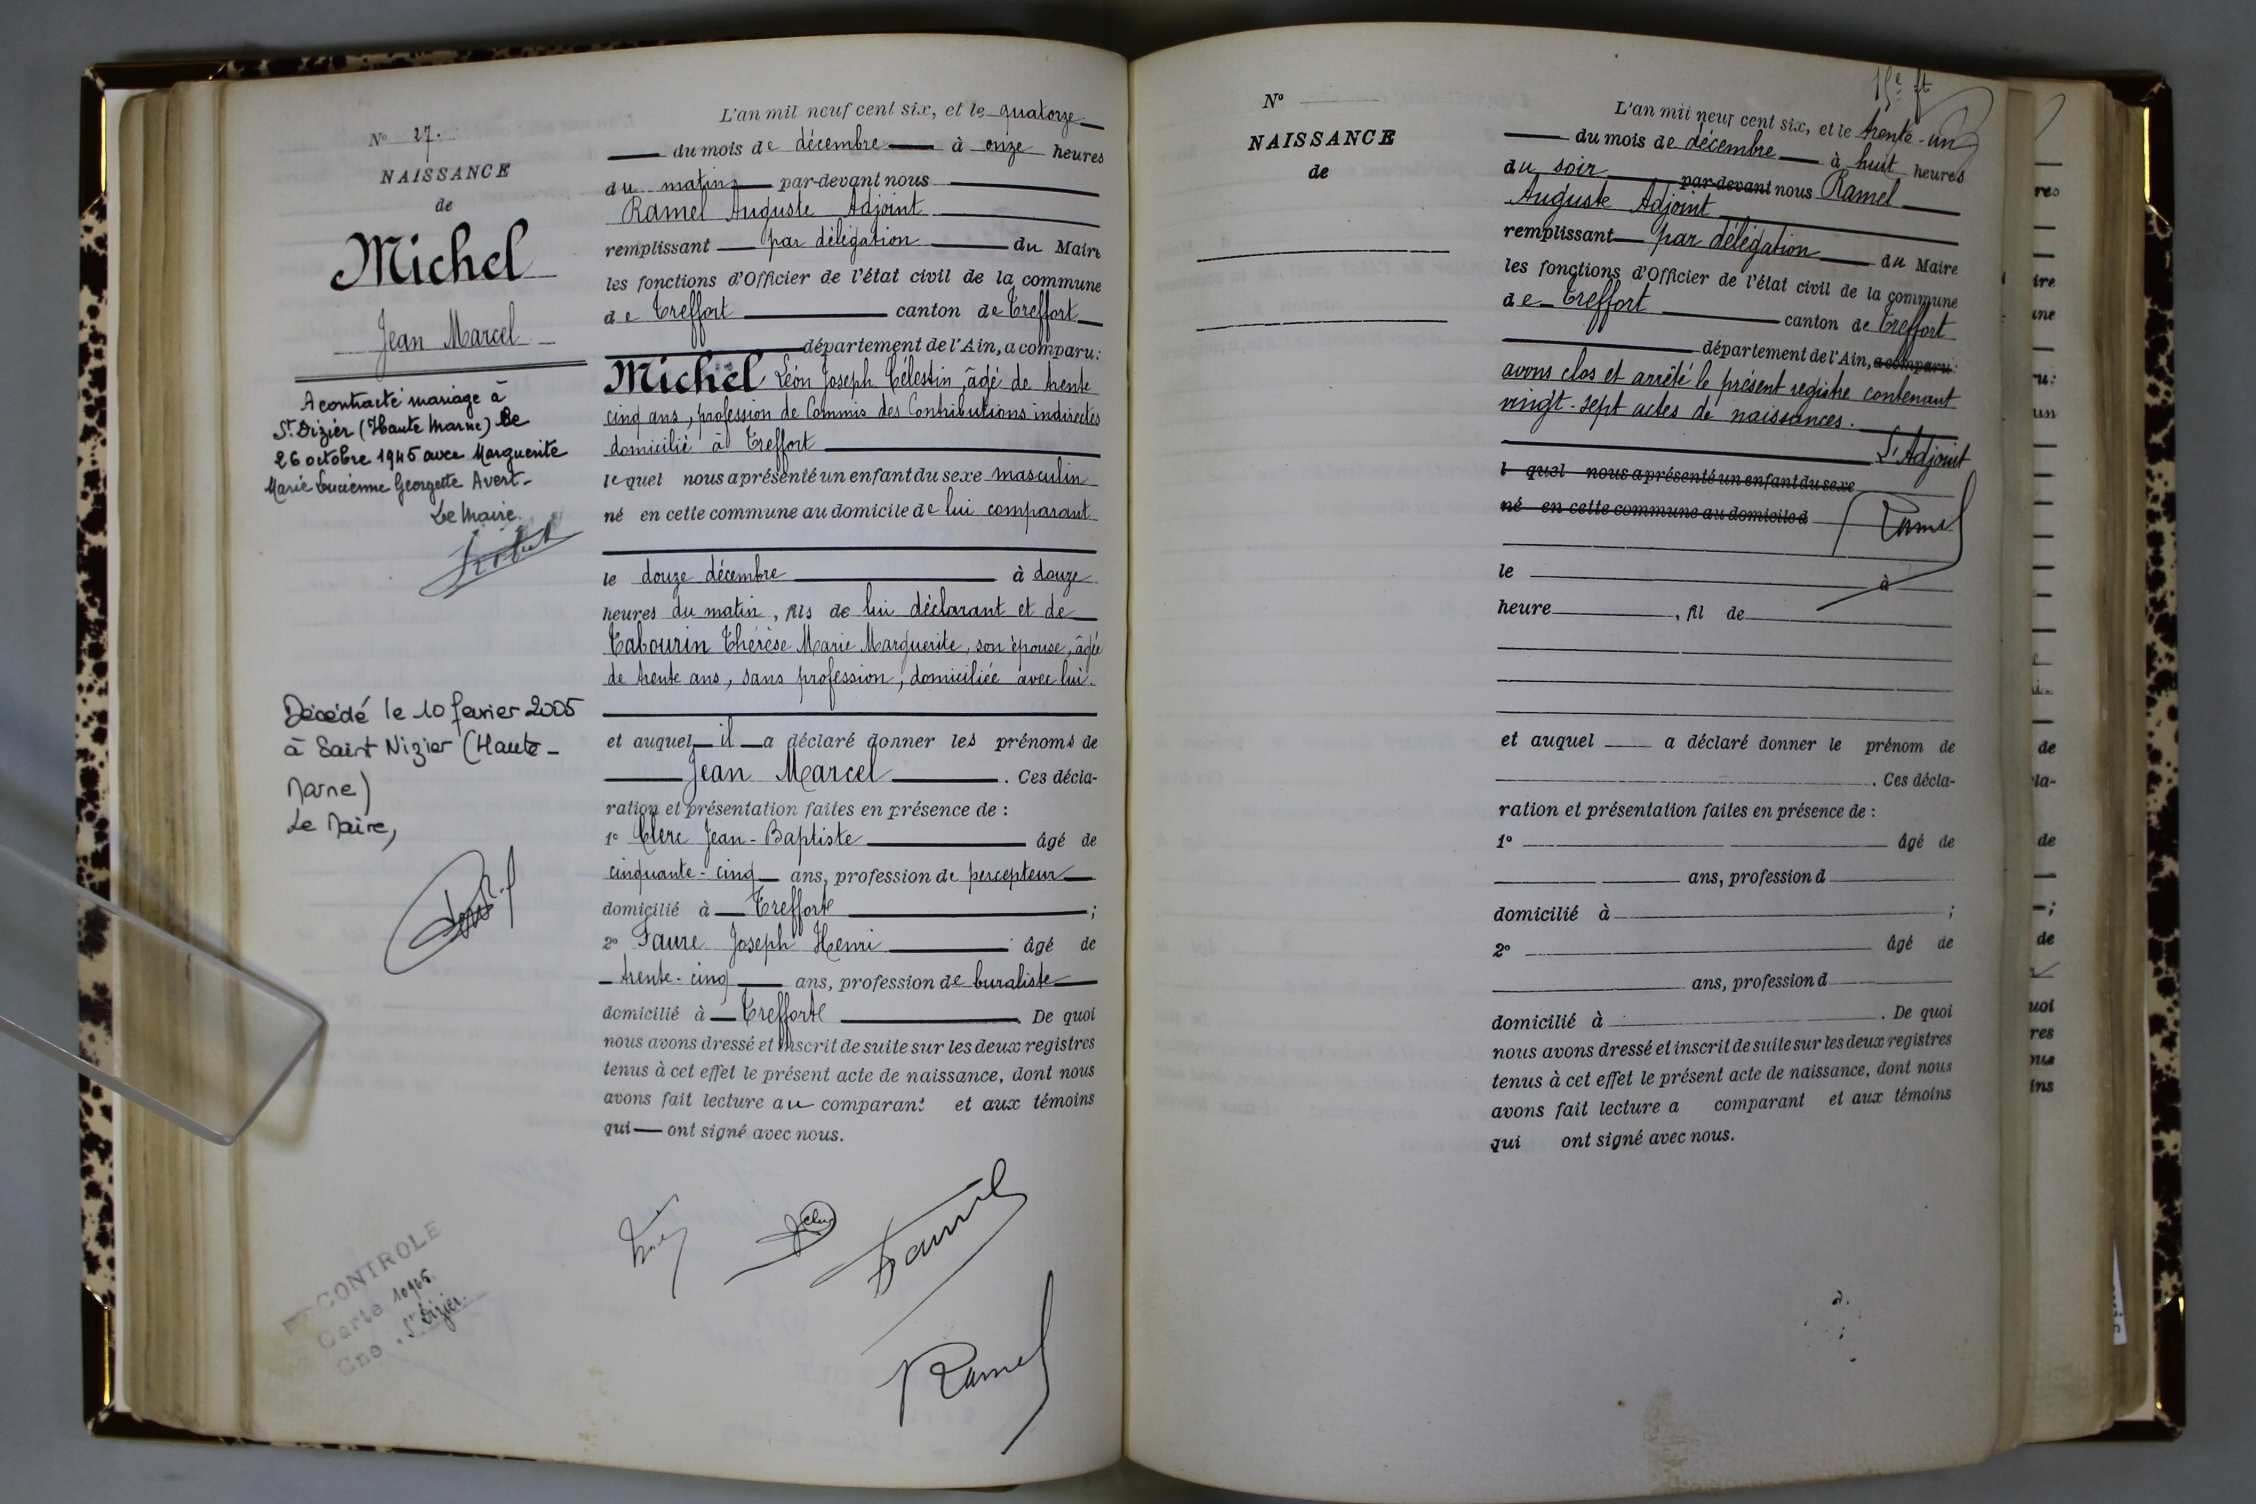 N° 27.
NAISSANCE
de
Michel
Jean Marcel
A contracté mariage à
St Dizier (Haute Marne) le
26 octobre 1945 avec Marguerite
Marie Lucienne Georgette Avert.
Le Maire.
Décédé le 10 février 2005
à Saint Nizier (Haute-
Marne)
Le Maire,
CONTROLE
Carte 10965.
Cne. St Dizier.
L'an mil neuf cent six, et le quatorze
du mois de décembre à onze heures
du matin, par-devant nous
Ramel Auguste Adjoint
remplissant par délégation du Maire
les fonctions d'Officier de l'état civil de la commune
de Treffort canton de Treffort
département de l'Ain, a comparu:
Michel Léon Joseph Célestin, âgé de trente
cinq ans, profession de Commis des Contributions indirectes
domicilié à Treffort
lequel nous a présenté un enfant du sexe masculin
né en cette commune au domicile de lui comparant
le douze décembre à douze
heures du matin, fils de lui déclarant et de
Tabourin Thérèse Marie Marguerite, son épouse, âgée
de trente ans, sans profession, domiciliée avec lui.
et auquel il a déclaré donner les prénoms de
Jean Marcel. Ces décla-
ration et présentation faites en présence de :
1° Clerc Jean-Baptiste âgé de
cinquante-cinq ans, profession de percepteur
domicilié à Treffort ;
2° Faure Joseph Henri âgé de
trente-cinq ans, profession de buraliste
domicilié à Treffort. De quoi
nous avons dressé et inscrit de suite sur les deux registres
tenus à cet effet le présent acte de naissance, dont nous
avons fait lecture au comparant et aux témoins
qui ont signé avec nous.
Ramel
N°
NAISSANCE
de
L'an mil neuf cent six, et le trente-un
du mois de décembre à huit heures
du soir par-devant nous Ramel
Auguste Adjoint
remplissant par délégation du Maire
les fonctions d'Officier de l'état civil de la commune
de Treffort canton de Treffort
département de l'Ain, a comparu:
avons clos et arrêté le présent registre contenant
vingt-sept actes de naissances.
L'Adjoint
l quel nous a présenté un enfant du sexe
né en cette commune au domicile d
Ramel
le à
heure , fil de
et auquel a déclaré donner le prénom de
. Ces décla-
ration et présentation faites en présence de :
1° âgé de
ans, profession d
domicilié à ;
2° âgé de
ans, profession d
domicilié à . De quoi
nous avons dressé et inscrit de suite sur les deux registres
tenus à cet effet le présent acte de naissance, dont nous
avons fait lecture a comparant et aux témoins
qui ont signé avec nous.